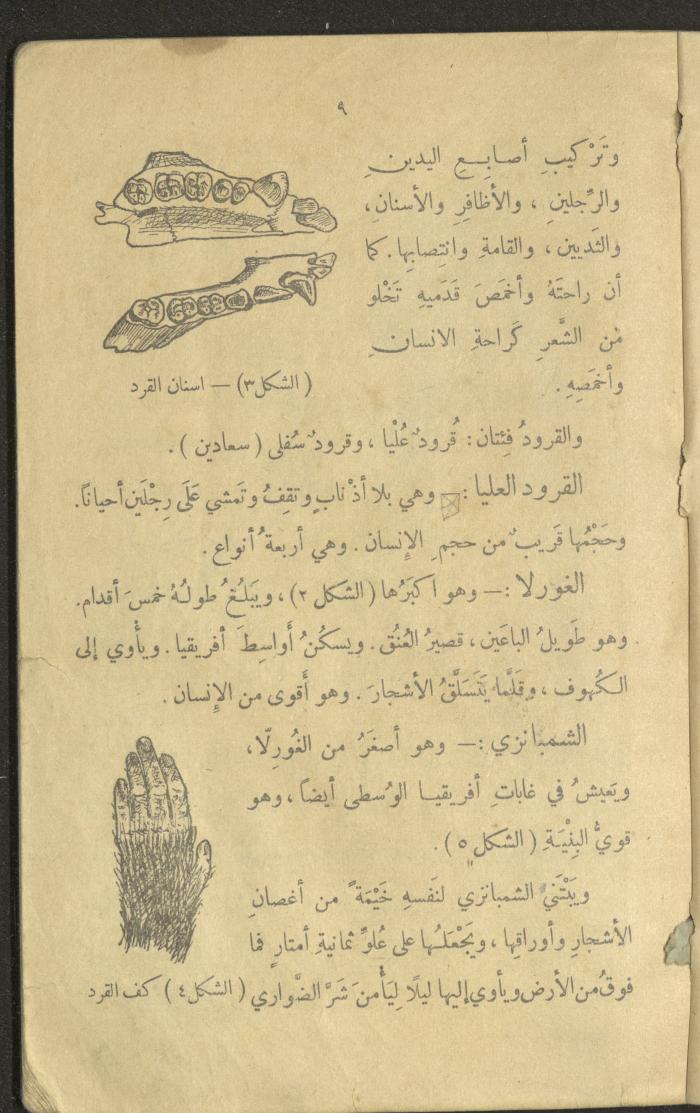 ٩
وتَرْكيبِ أصابِعِ اليدينِ
والرِّجلينِ ، والأظافِرِ والأسنانِ،
والثديين ، والقامةِ وانتِصابِها. كما
أن راحتَهُ وأخمَصَ قَدَميهِ تَخْلو
مُن الشَّعرِ كَراحةِ الانسانِ
وأخمَصِهِ .
(الشكل٣) — اسنان القرد
والقرودُ فِئتان: قُرودٌ عُلْيا ، وقرودٌ سُفلى (سعادين ) .
القرود العليا : وهي بلا أذْنابٍ وتقِفُ وتَمشي عَلَى رِجْلَينِ أحيانًا.
وحَجْمُها قَريبٌ من حجمِ الإِنسان . وهي أربعةُ أنواع .
الغورلا :— وهو اكبَرُها (الشكل ٢) ، ويَبلُغُ طولُهُ خمسَ أقدام.
وهو طَويلُ الباعَين ، قصيرُ العُنُق . ويسكُنُ أَواسِطَ أفريقيا . ويأْوي إلى
الكُهوف ، وقَلَّما يَتَسَلَّقُ الأشجارَ . وهو أَقوى من الإِنسان .
الشمبانزي :— وهو أصغَرُ من الغُورِلّا ،
ويَعيشُ في غاباتِ أفريقيا الوُسطى أيضاً ، وهو
قويُّ البِنْيَةِ (الشكل ٥ ) .
ويَبْتَني الشمبانزي لنَفسهِ خَيْمَةً من أغصانِ
الأشجارِ وأوراقِها ، ويَجْعَلُها على عُلوِّ ثمانيةِ أمتارٍ فما
فوقُ من الأرض ويأوي إليها ليلًا لِيَأْمنَ شَرَّ الضَّواري
(الشكل ٤ ) كف القرد